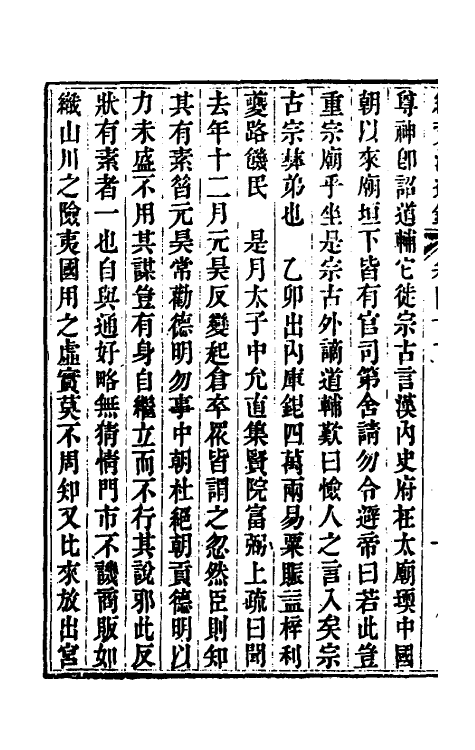 尊神卽詔道輔它徙宗古言漢內史府在太廟堧中國
朝以來廟垣下皆有官司第舍請勿令避帝曰若此豈
重宗廟乎坐是宗古外謫道輔歎曰憸人之言入矣宗
古宗彝弟也　乙卯出內庫銀四萬兩易粟賑益梓利
夔路饑民　是月太子中允直集賢院富弼上疏曰聞
去年十二月元昊反變起倉卒衆皆謂之忽然臣則知
其有素昝元昊常勸德明勿事中朝杜絕朝貢德明以
力未盛不用其謀豈有身自繼立而不行其說邪此反
狀有素者一也自與通好略無猜情門市不譏商販如
織山川之險夷國用之虛實莫不周知又比來放出宮